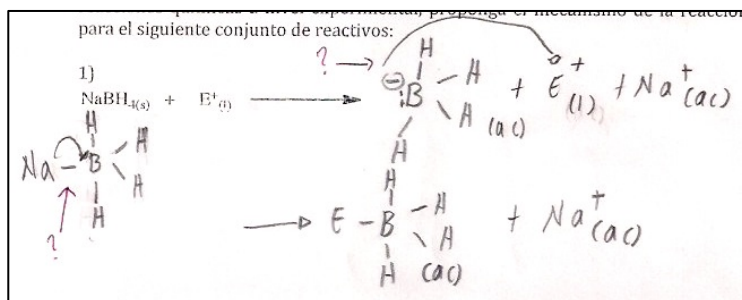 para el siguiente conjunto de reactivos:
1)
NaBH4(s) + E+(l)
? → H
⊖ :B – H + E+ (l) + Na+ (ac)
H (ac)
H
H
Na – B H
H
H
?
H
→ E – B – H + Na+ (ac)
H
H (ac)